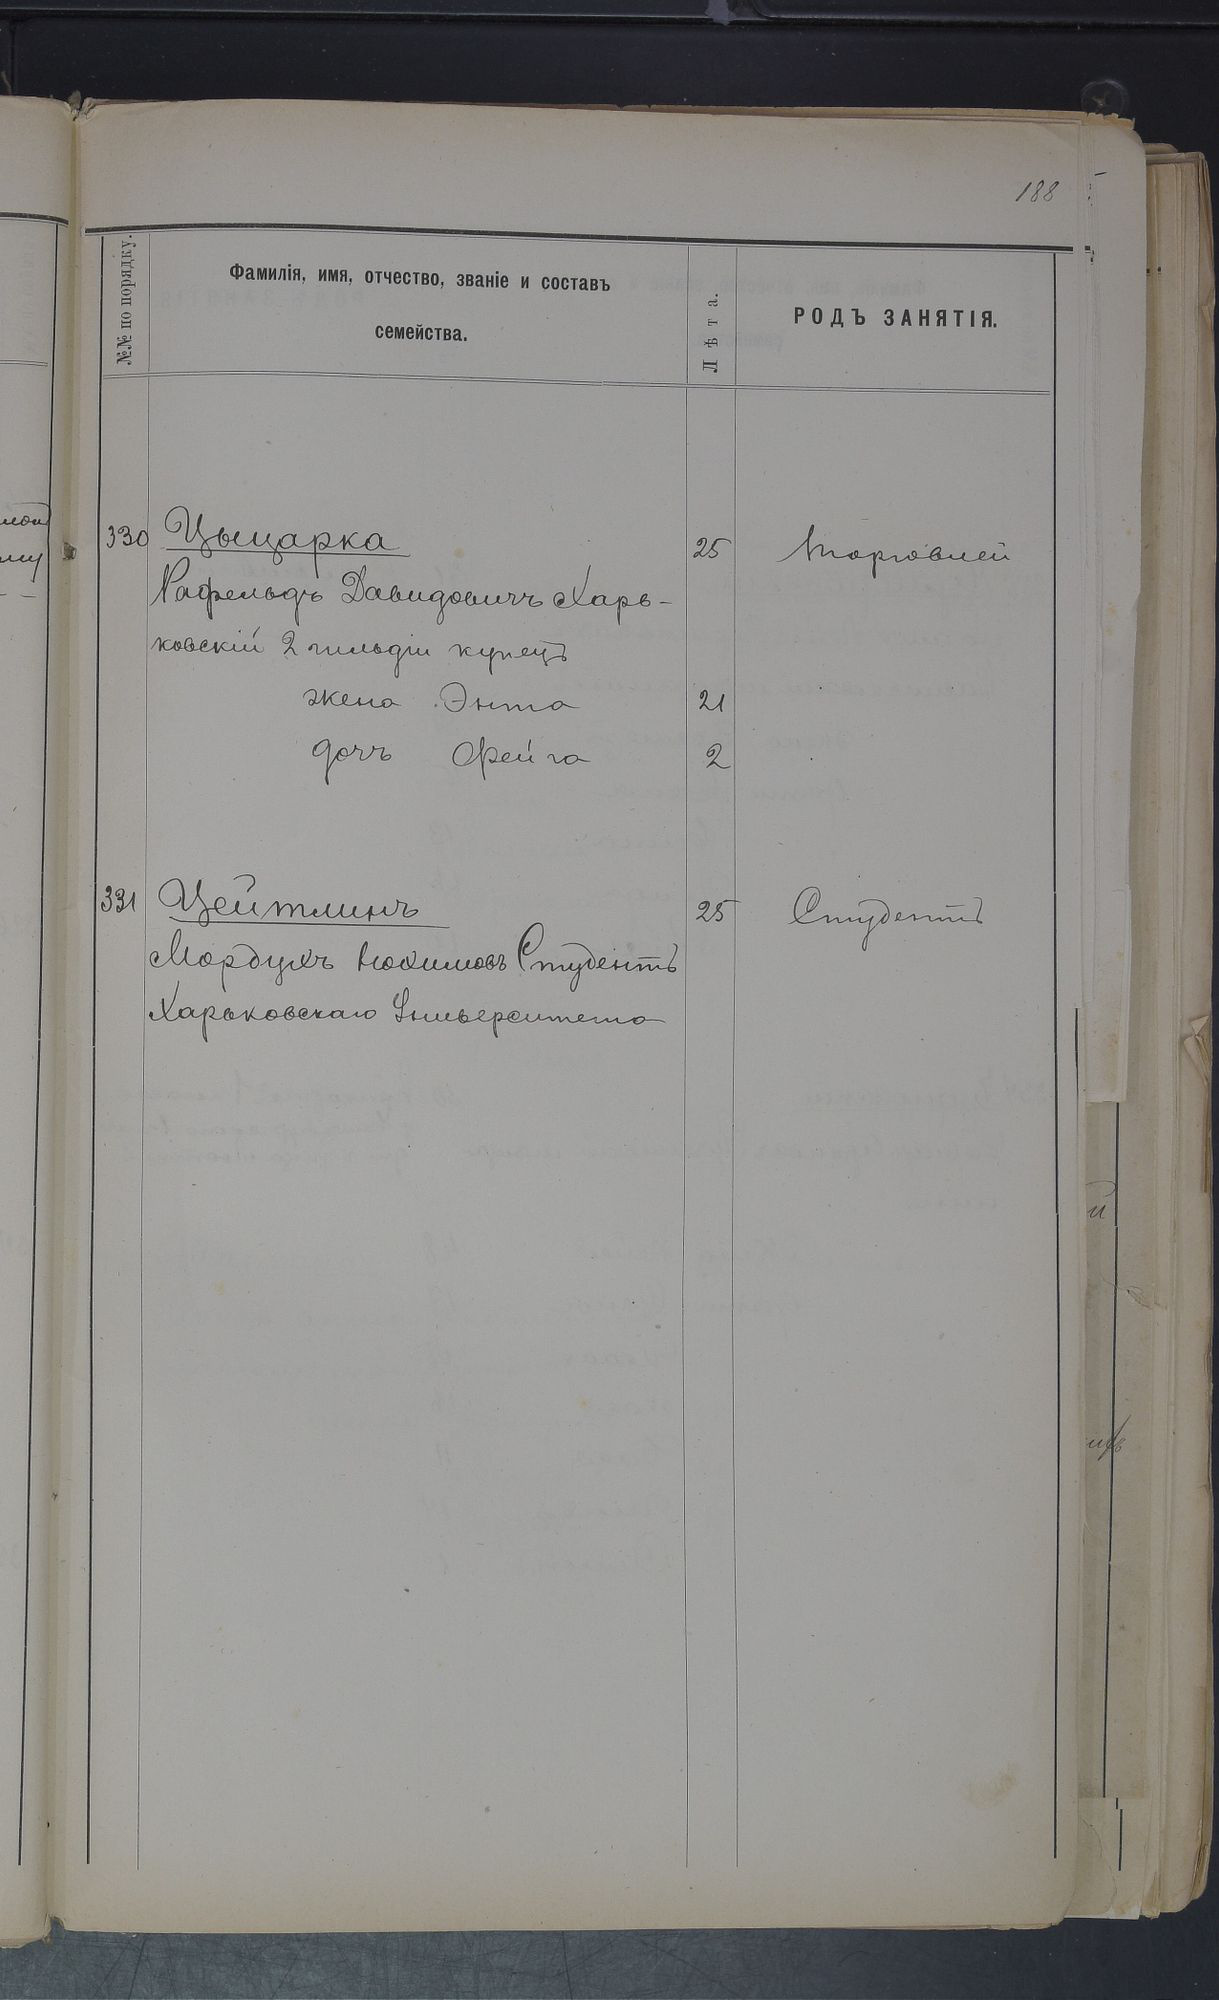 188
№№ по порядку.
Фамилія, имя, отчество, званіе и составъ
семейства.
Лѣта.
РОДЪ ЗАНЯТІЯ.
330 Цыцарка 25 торговлей
Рафельдъ Давидовичъ Харь-
ковскій 2 гильдіи купецъ
жена Энта 21
дочь Фейга 2
331 Цейтлинъ 25 Студентъ
Мордухъ Студентъ
Харьковскаго Университета